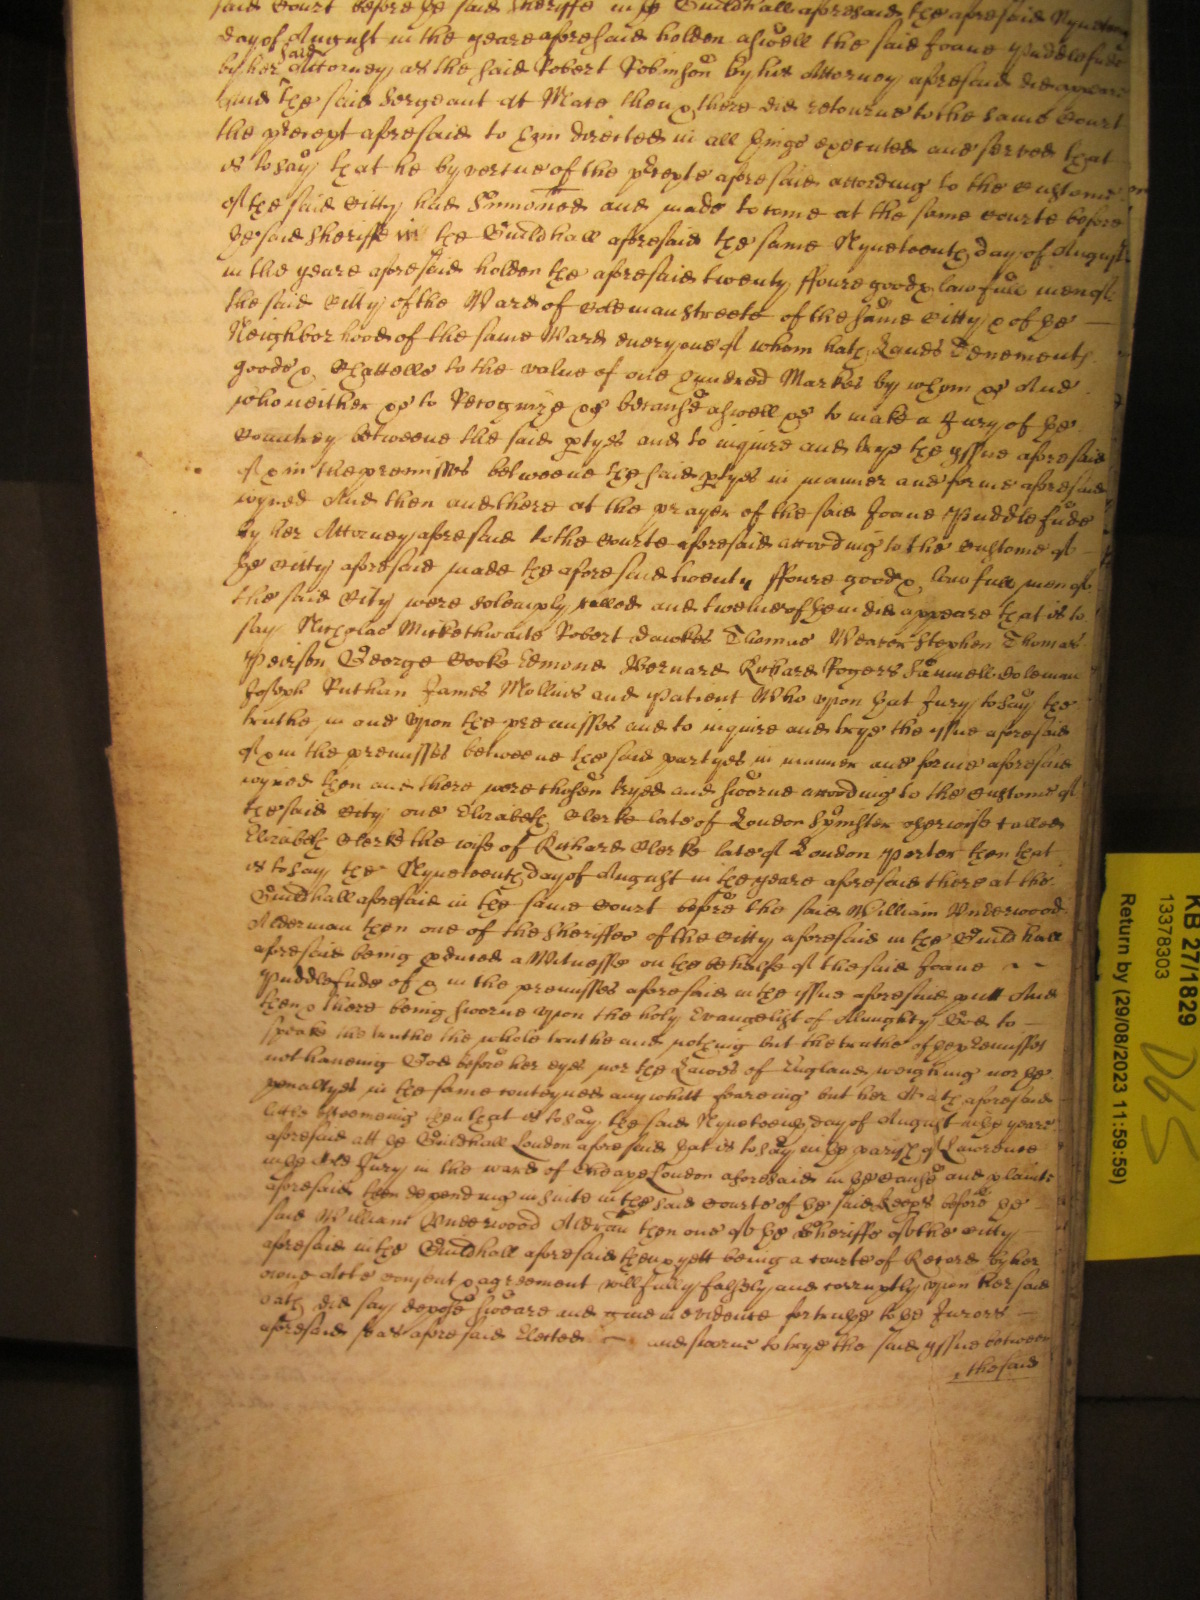 said Court before the said Sheriffe in ye Guildhall aforesaid the aforesaid Nyneteenth
day of August in the yeare aforesaid holden aswell the said Joane Puddlefude
by her said Attorney as the said Robert Robinson by his Attorney aforesaid did appeare
And the said Sergeant at Mace then & there did retourne to the same Court
the precept aforesaid to him directed in all things executed and served that
is to say that he by vertue of the precepte aforesaid according to the Custome
of the said Citty had Summoned and made to come at the same Courte before
ye said Sheriffe in the Guildhall afforesaid the same Nyneteenth day of August
in the yeare aforesaid holden the aforesaid twenty ffoure good & lawfull men of
the said Citty of the Ward of Colemanstreete of the same Citty & of ye
Neighborhood of the same Ward every one of whom hath Lands Tenements
goods & Chattells to the value of one hundred Markes by whom &c And
who neither &c to Recognize &c because aswell &c to make a Jury of ye
Countrey betweene the said ptyes and to inquire and trye the yssue aforesaid
of & in the premisses betweene the said ptyes in manner and forme aforesaid
ioyned And then and there at the prayer of the said Joane Puddlefude
by her Attorney aforesaid to the Courte aforesaid according to the Custome of
ye Citty aforesaid made the aforesaid twenty ffoure good & lawfull men of
the said City were solemply called and twelve of them did appeare that is to
say Nicholas Mickethwaite Robert Dawkes Thomas Weaver Stephen Thomas
Peirson George Cooke Edmond Bernard Richard Rogers Samuell Coleman
Joseph Ruthin James Mollins and Patient Who upon that Jury to say the
truthe in and upon the premisses and to inquire and trye the yssue aforesaid
of & in the premisses betweene the said partyes in manner and forme aforesaid
ioyned then and there were chosen tryed and sworne according to the Custome of
the said City one Elizabeth Clerke late of London Spinster otherwise called
Elizabeth Clerke the wife of Richard Clerke late of London Porter then that
is to say the Nyneteenth day of August in the yeare aforesaid there at the
Guildhall aforesaid in the same Court before the said William Underwood
Alderman then one of the Sheriffes of the Citty aforesaid in the Guildhall
aforesaid being pduced a Witnesse on the behalfe of the said Joane
Puddlefude of & in the premisses aforesaid in the yssue aforesaid putt And
then & there being sworne upon the holy Evangelist of Almighty God to
speake the truthe the whole truthe and nothing but the truthe of ye premisses
not haveing God before her eyes nor the Lawes of England weighing nor ye
penaltyes in the same conteyned any whitt feareing but her Oath aforesaid
little esteemeing then that is to say the said Nyneteenth day of August in ye yeare
aforesaid att ye Guildhall London aforesaid that is to say in ye parish of St Lawrence
in ye Old Jury in the ward of Cheape London aforesaid in ye cause and plainte
aforesaid then depending in suite in the said Courte of ye said Keeps before ye
said William Underwood Aldran then one of ye Sheriffs of the Citty
aforesaid in the Guildhall aforesaid then & yett being a Courte of Record by her
owne Acte consent & agreement willfully falsely and corruptly upon her said
oath did say depose sweare and give in evidence for truthe to ye Jurors
aforesaid so as aforesaid Elected and sworne to trye the said yssue betweene
the said
KB 27/1829
13378303
Return by (29/08/2023 11:59:59)